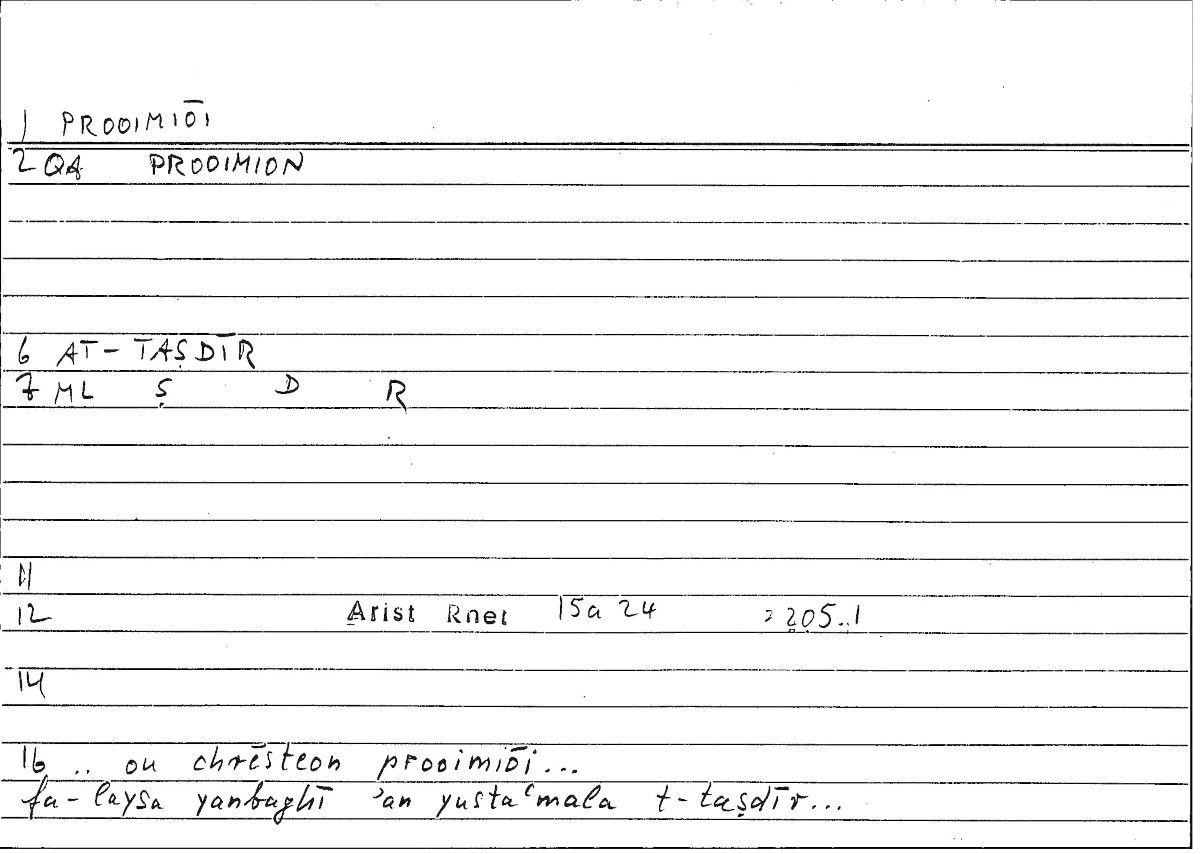 1 PROOIMIŌI
2 QA PROOIMION
6 AT-TAṢDĪR
7 ML Ṣ D R
11
12 Arist Rhet 15a 24 205..1
14
16 .. ou chrēsteon prooimiōi...
fa-laysa yanbaghī ʾan yustaʿmala t-taṣdīr...